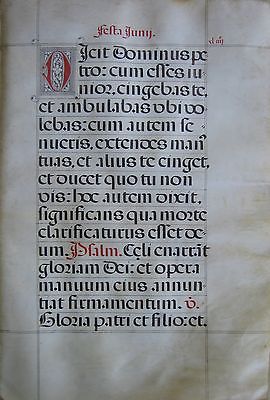 Festa Junij.
DIcit Dominus pe
tro: cum esses iu
nior, cingebas te,
et ambulabas vbi vo
lebas: cum autem se
nueris, extendes man9
tuas, et alius te cinget,
et ducet quo tu non
vis: hoc autem dixit,
significans qua morte
clarificaturus esset de
um. Psalm. Celi enarrãt
gloriam Dei: et opera
manuum eius annun
tiat firmamentum. v̄.
Gloria patri et filio: et.